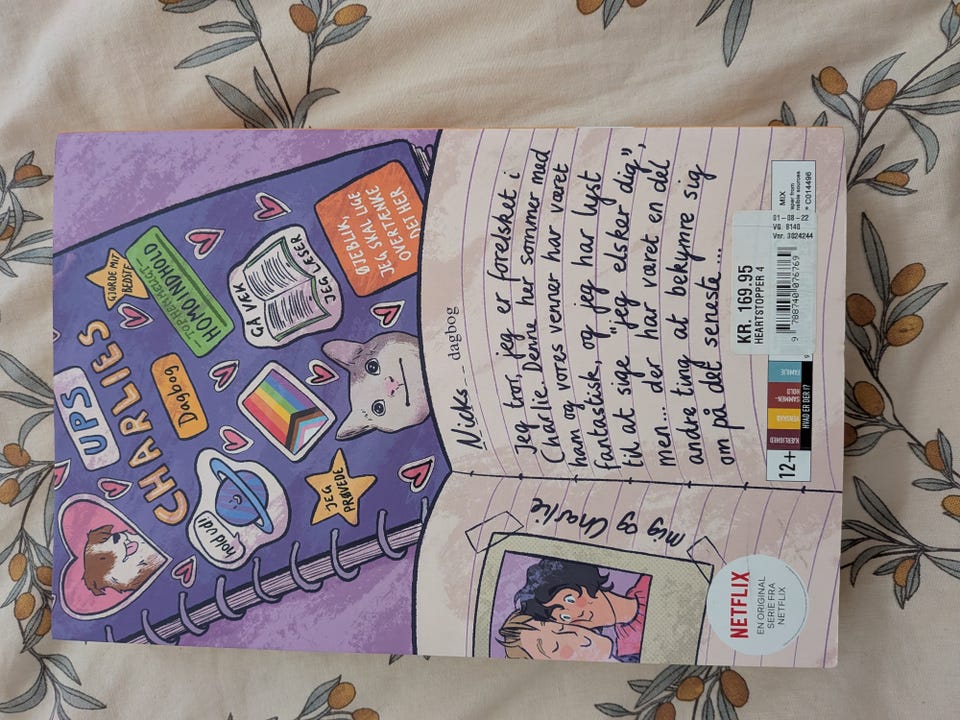 UPS
CHARLIES
Dagbog
GJORDE MIT
BEDSTE
"TOP HEMMELIGT"
HOMO INDHOLD
GÅ VÆK
JEG LÆSER
ØJEBLIK,
JEG SKAL LIGE
OVERTÆNKE
DET HER
hold ud!
JEG
PRØVEDE
Nicks__ dagbog
Jeg tror, jeg er forelsket i
Charlie. Denne her sommer med
ham og vores venner har været
fantastisk, og jeg har lyst
til at sige "jeg elsker dig",
men... der har været en del
andre ting at bekymre sig
om på det seneste...
mig og Charlie
NETFLIX
EN ORIGINAL
SERIE FRA
NETFLIX
12+
KÆRLIGHED
VENSKAB
SAMMEN-
HOLD
FAMILIE
HVAD ER DER I?
KR. 169.95
HEARTSTOPPER 4
01-08-22
VG. 8140
Vnr. 3024244
9 788740 076769
MIX
aper from
nsible sources
C014496